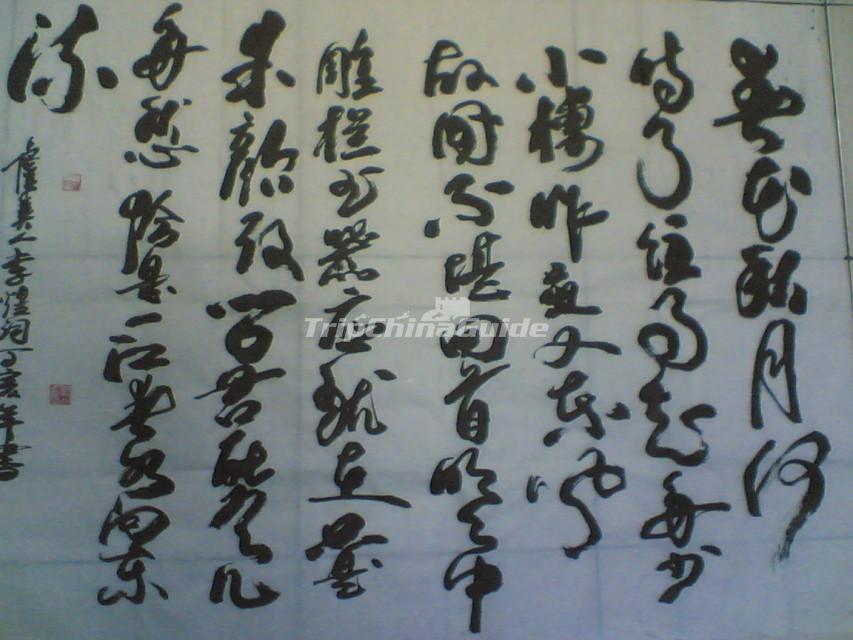 春花秋月何
時了往事知多少
小樓昨夜又東風
故國不堪回首明中
雕栏玉应猶在
朱顏改問君能有几
多愁是一江春水向東
流
虞美人李煜词丁亥年書
TripChinaGuide